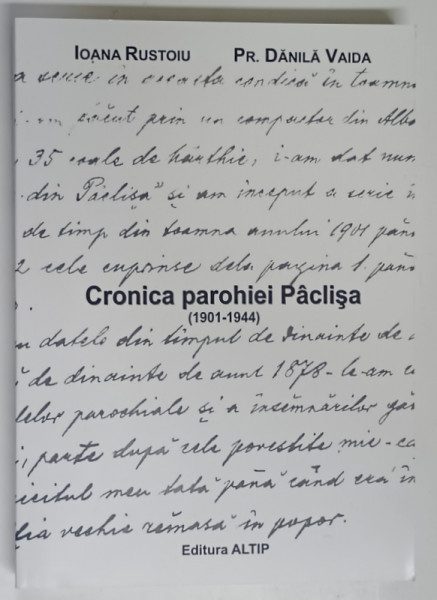 IOANA RUSTOIU PR. DĂNILĂ VAIDA
a scrie in ceasta condică în toamn
i-am făcut prin un compactor din Alba
35 coale de hârthie, i-am dat num
din Pâclișa" și am început a scrie i
de timp din toamna anului 1901 păn
2 cele cuprinse dela pagina 1. pân
Cronica parohiei Pâclişa
(1901-1944)
u datele din timpul de dinainte de
de dinainte de anul 1878 - le-am c
elor parochiale și a însemnărilor găs
parte după cele povestite mie - ca
icitul meu tată până când era în
ția vechie rămasă în popor.
Editura ALTIP